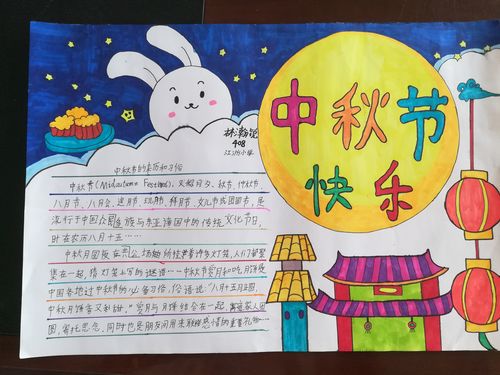 中秋节
快乐
408
江汾小学
中秋节的来历和习俗
中秋节(Midautumn Festival)，又称月夕、秋节、仲秋节、
八月节、八月会、追月节、玩月节、拜月节、女儿节或团圆节，是
流行于中国众多民族与东亚诸国中的传统文化节日，
时在农历八月十五……
中秋月圆夜在公共场所挂着许多灯笼，人们都聚
集在一起，猜灯笼上写的谜语……中秋节赏月和吃月饼是
中国各地过中秋节的必备习俗，俗话说："八月十五月正圆，
中秋月饼香又甜。"赏月与月饼结合在一起，寓意家人团
圆，寄托思念。同时也是朋友间用来联络感情的重要礼物…